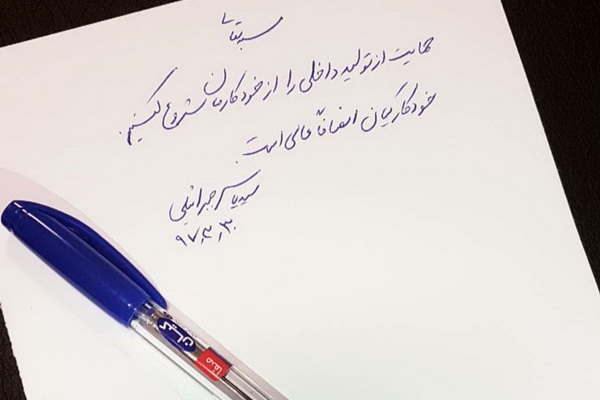 بسمه تعالی
حمایت از تولید داخلی را از خودکارمان شروع کنیم.
خودکار کیان انصافاً عالی است.
سید یاسر جبرائیلی
۹۷٫۲٫۳۰
کیان